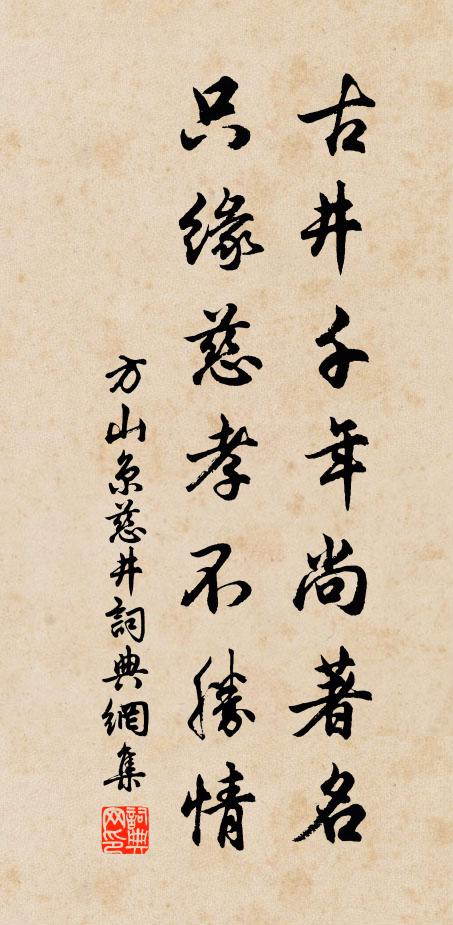 古井千年尚著名
只緣慈孝不勝情
方山京慈井詞典網集
詞典网印